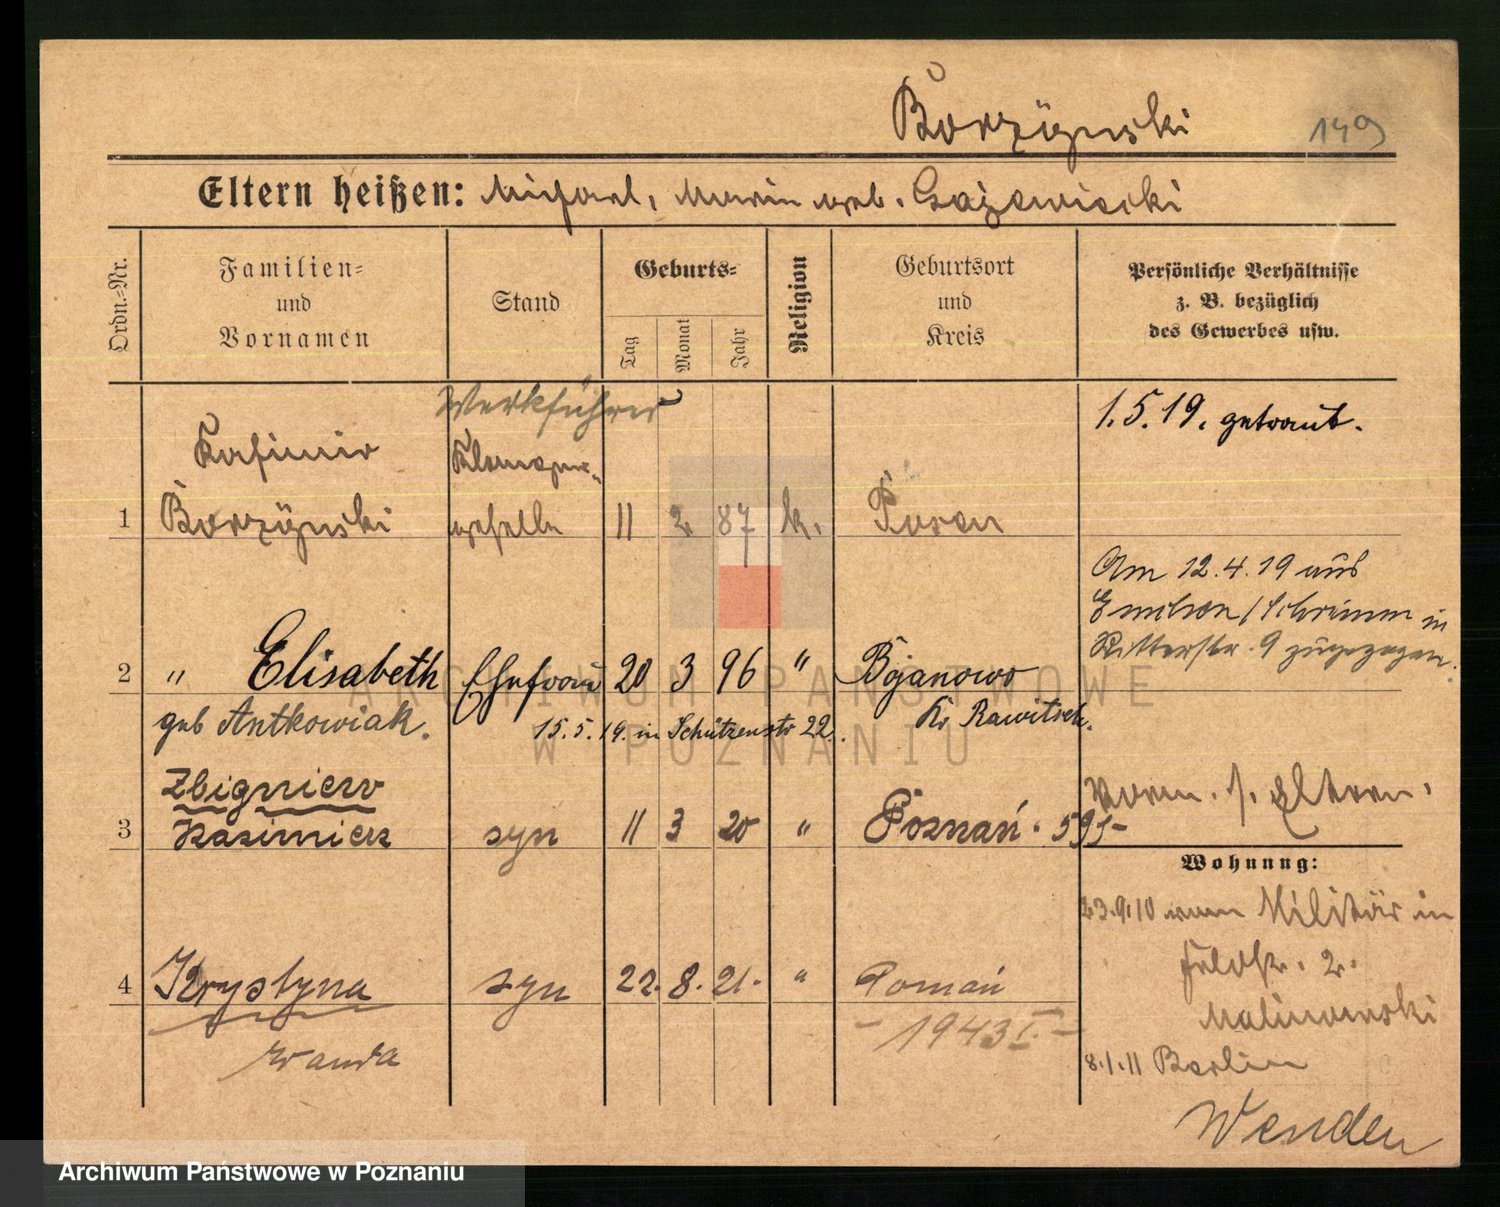 Borzÿnski
149
Eltern heißen: Michael, Marie geb. Gazewiecki
Ordn.-Nr.
Familien-
und
Vornamen
Stand
Geburts-
Tag
Monat
Jahr
Religion
Geburtsort
und
Kreis
Persönliche Verhältnisse
z. B. bezüglich
des Gewerbes usw.
Werkführer
1.5.19. getraut.
Kasimir
Klempner-
1 Borzÿnski geselle 11 2. 87 k. Posen
Am 12.4.19 aus
Schrimm in
Ritterstr. 9 zugezogen.
2 " Elisabeth Ehefrau 20 3 96 " Bojanowo
geb Antkowiak. Kr Rawitsch.
15.5.19. in Schützenstr 22.
Zbigniew
Vorm. s. Eltern.
3 Kazimierz syn 11 3 20 " Poznań. 595-
Wohnung:
23.9.10 vom Militär in
Feldstr. 2.
4 Krystyna syn 22. 8. 21. " Poznań
Malinowski
- 1943 I. -
Wanda
8.1.11 Berlin
Wenden
ARCHIWUM PAŃSTWOWE
W POZNANIU
Archiwum Państwowe w Poznaniu